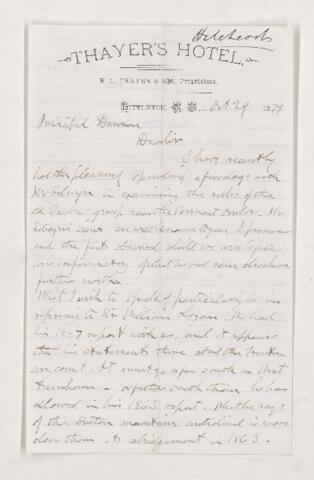 Hitchcock
THAYER'S HOTEL,
H. L. THAYER & SON, Proprietors.
LITTLETON, N. H. Oct 29 1879
Principal Dawson
Dear Sir
I have recently
had the pleasure of spending a few days with
Mr Selwyn in examining the rocks of the
Quebec group near the Vermont border. Mr
Selwyn's views are well known to you I presume
and the facts observed while we were together
are confirmatory of what he had seen elsewhere
farther north
What I wish to speak of particularly is in
reference to Sir William Logan. We had
his 1847 report with us, and it appears
that his statements there about the
are correct. It must go as far south as West
Farnham - farther south than he has
allowed in his 1863 report. What he says
of the Sutton mountain anticlinal is more
clear than its abridgement in 1863.